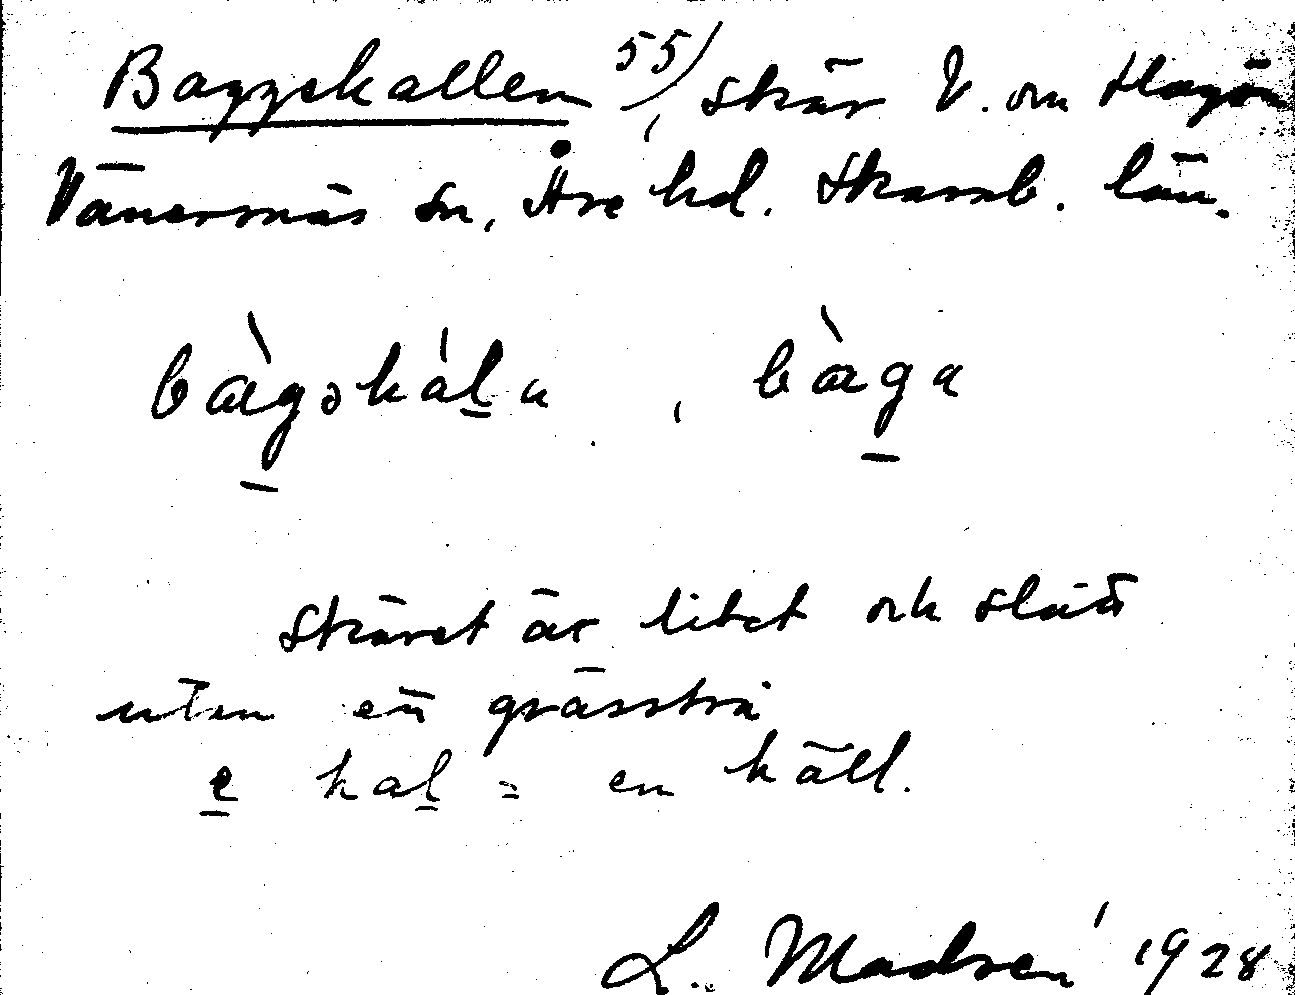 Baggekallen 55/, skär V. om Hagön
Vänersnäs sn, Åse hd. Skarab. län.
bàgəkála, bàga
Skäret är litet och slätt
utan ett grässtrå
e kal = en häll.
L. Madsén 1928